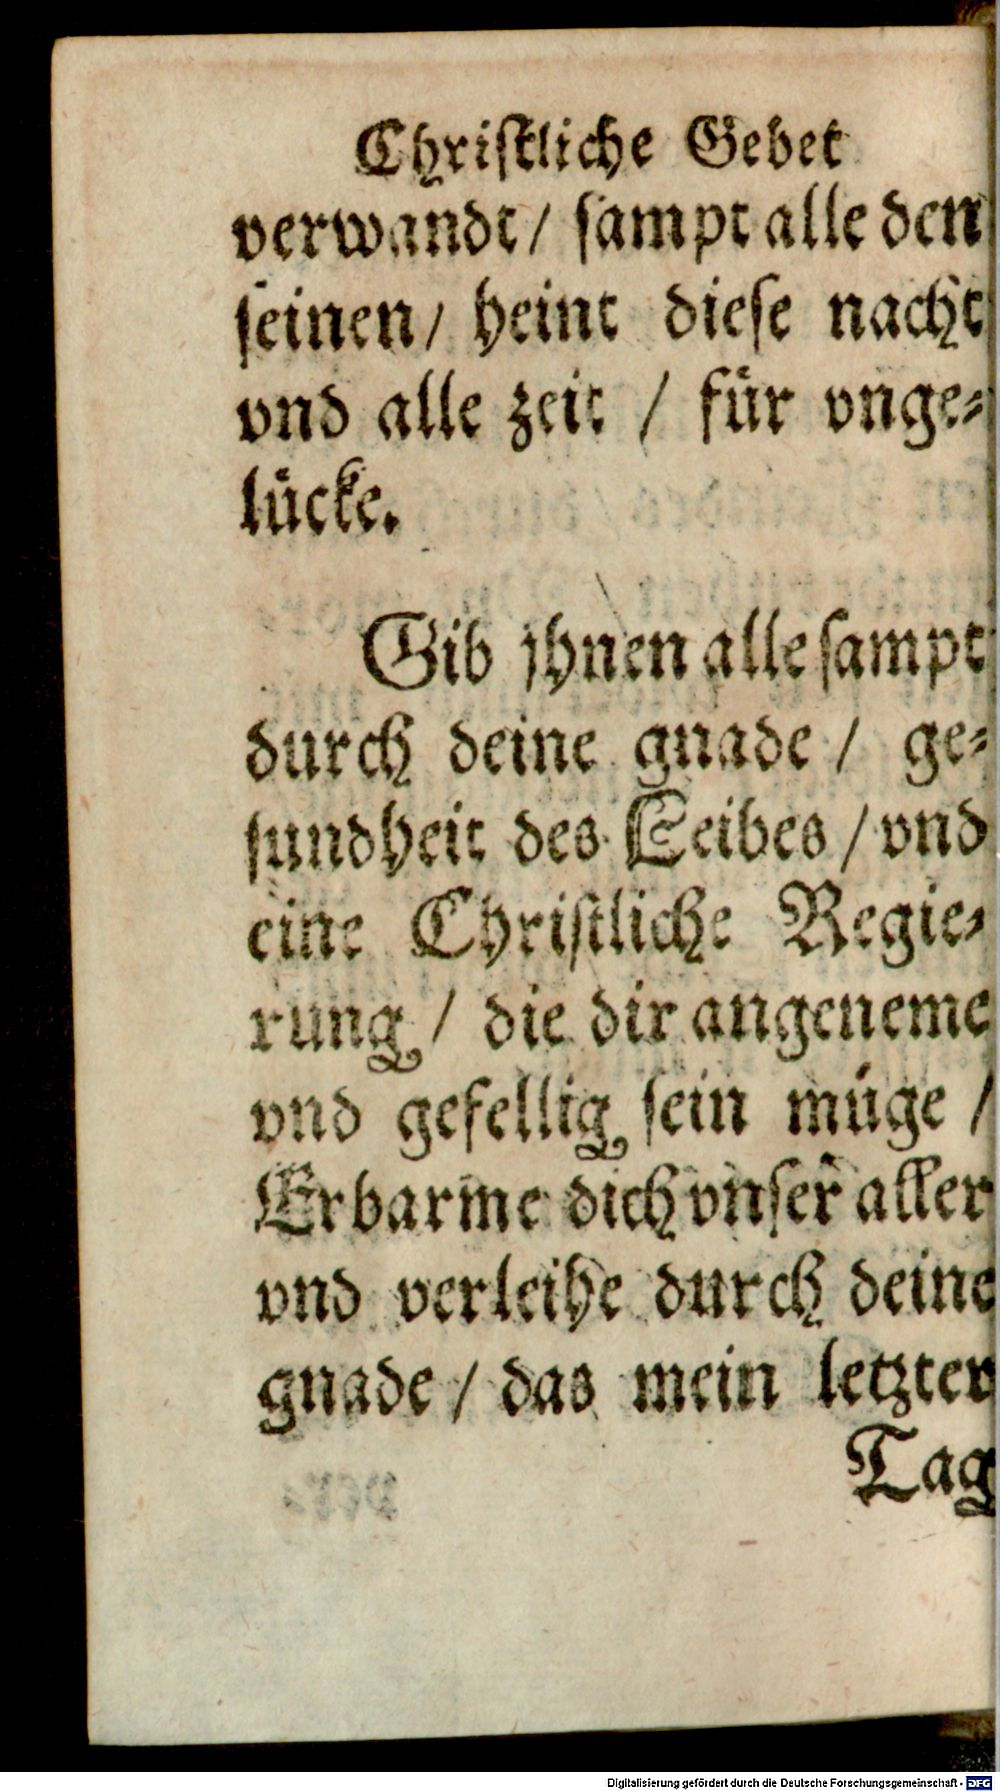 Chriſtliche Gebet
verwandt / ſampt alle den
ſeinen / heint dieſe nacht
vnd alle zeit / für vnge⸗
lücke.
Gib jhnen alle ſampt
durch deine gnade / ge⸗
ſundheit des Leibes / vnd
eine Chriſtliche Regie⸗
rung / die dir angeneme
vnd gefellig ſein müge /
Erbarme dich vnſer aller
vnd verleihe durch deine
gnade / das mein letzter
Tag
Digitalisierung gefördert durch die Deutsche Forschungsgemeinschaft - DFG